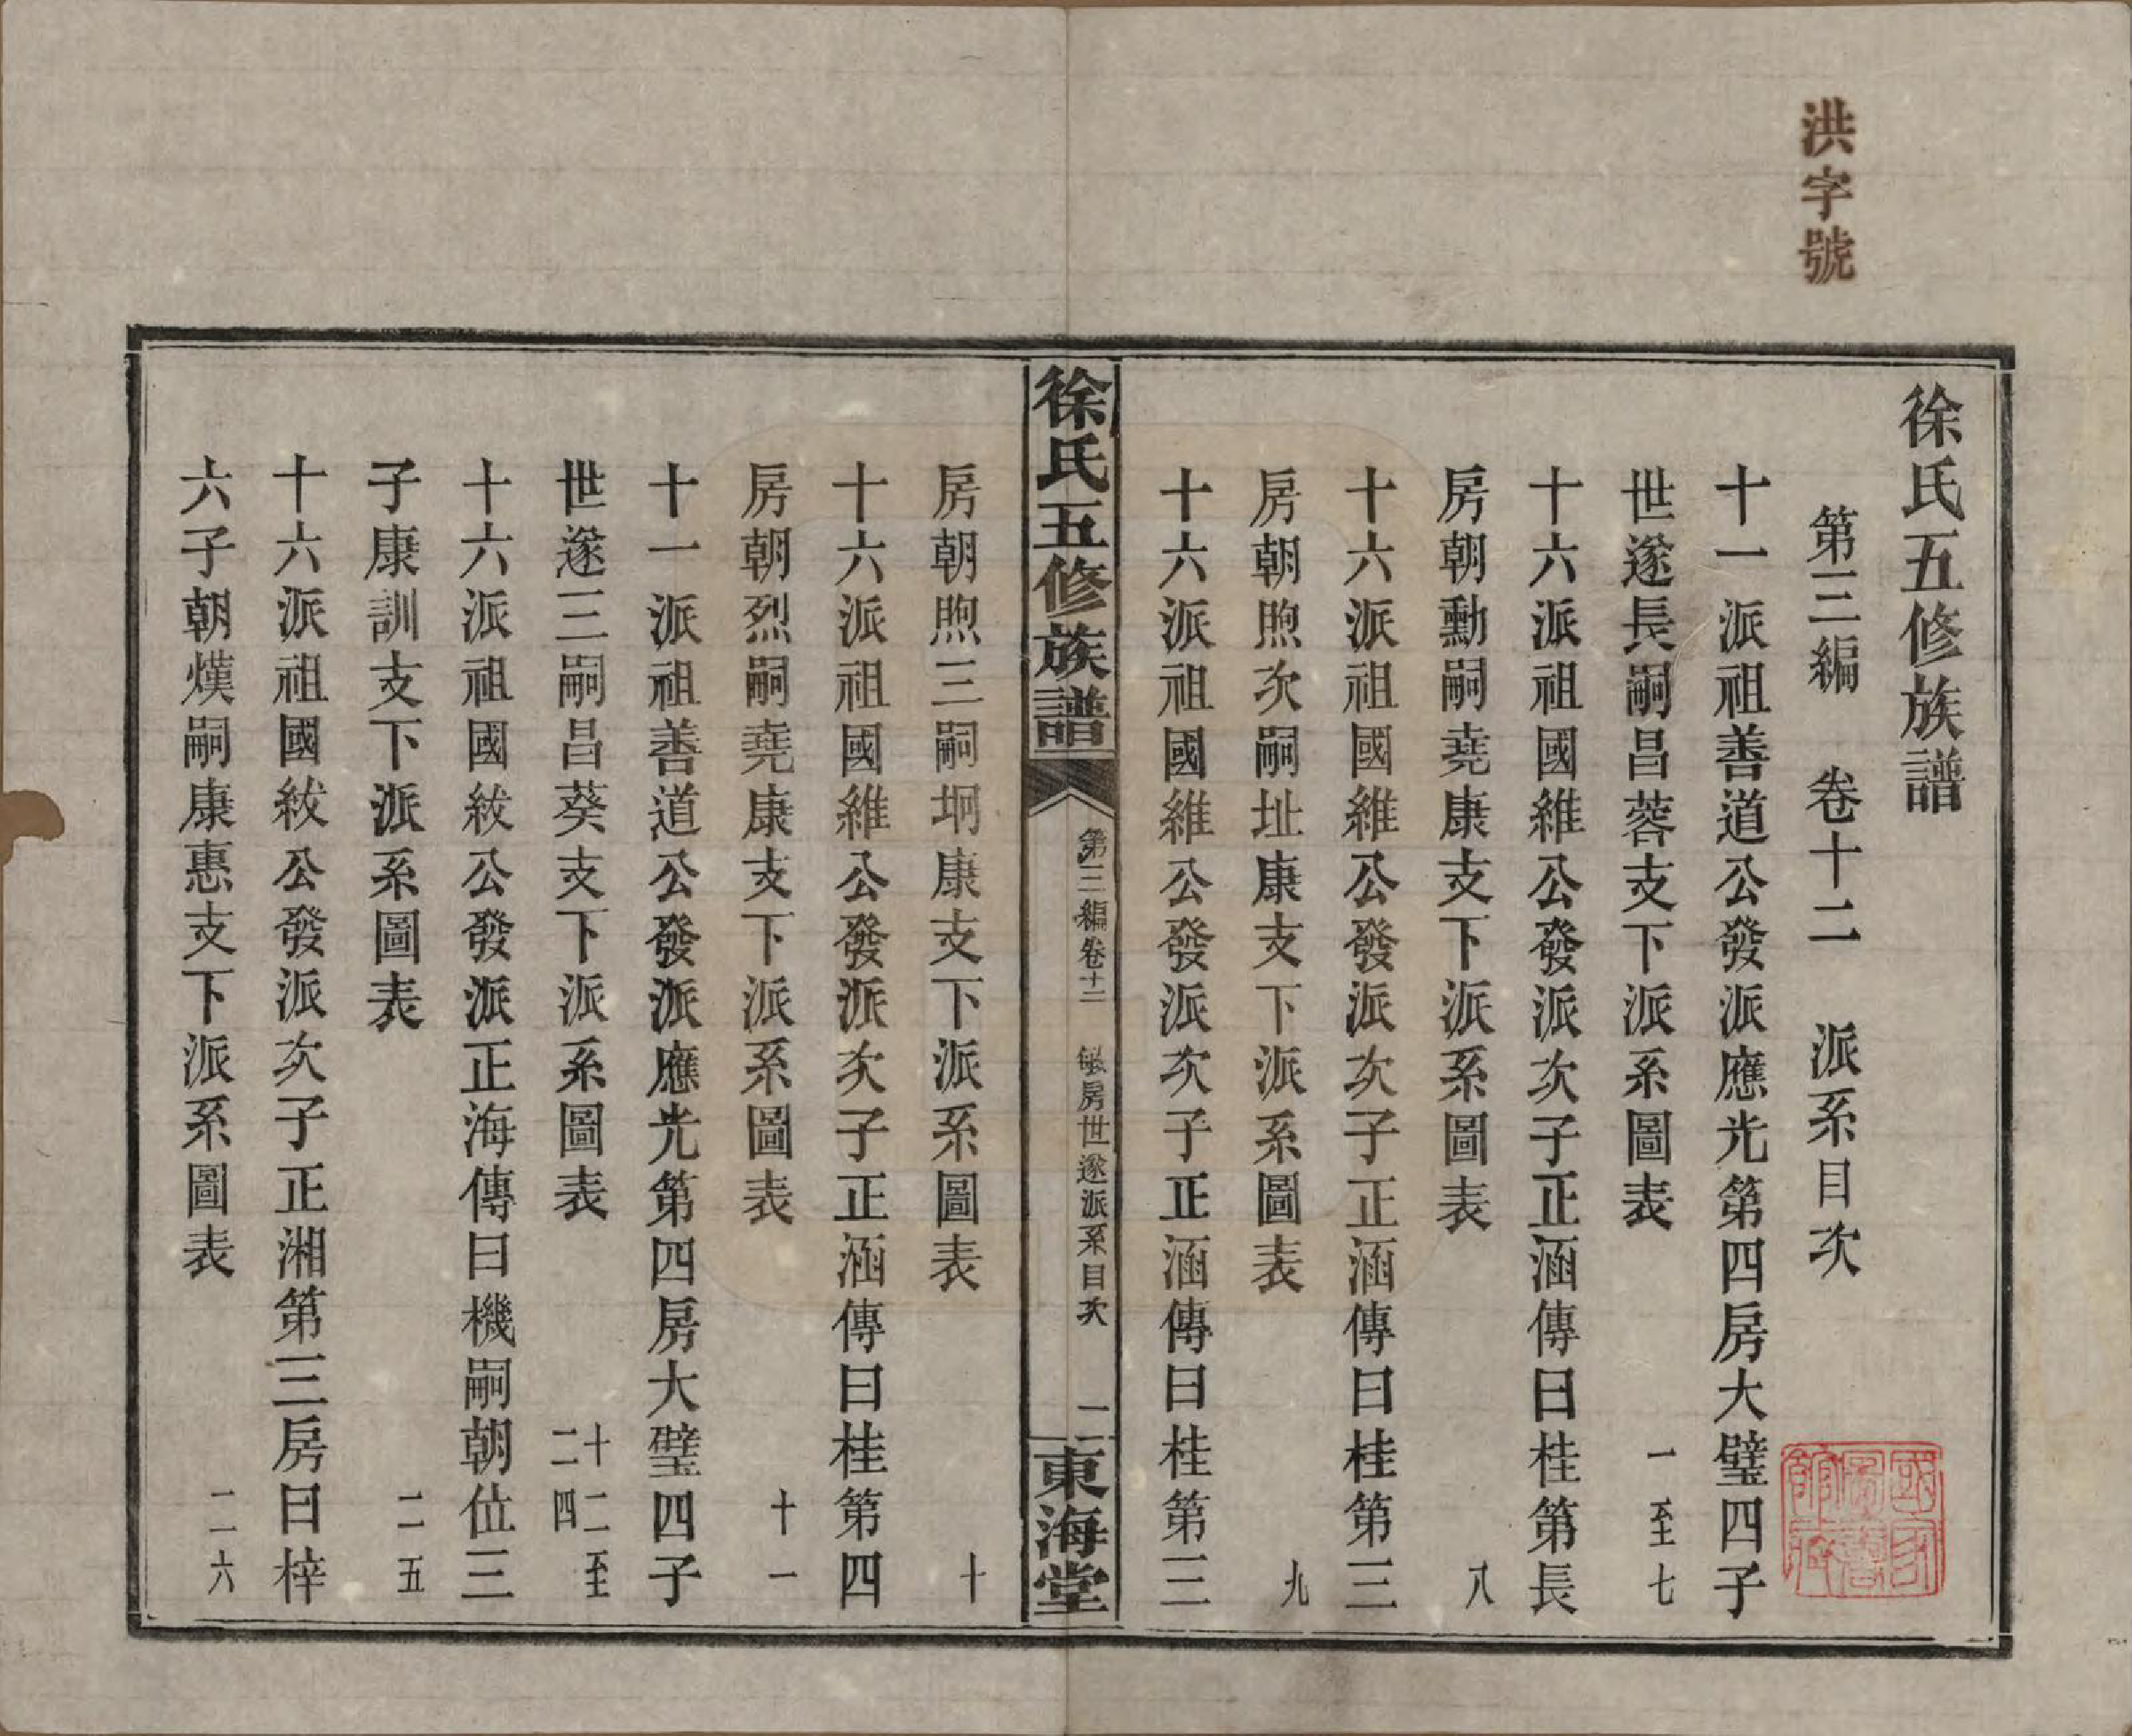 洪字號
徐氏五修族譜
第三編　卷十二　派系目次
十一派祖善道公發派應光第四房大璧四子
世遂長嗣昌蓉支下派系圖表　一至七
十六派祖國維公發派次子正涵傳曰桂第長
房朝勳嗣堯康支下派系圖表　八
十六派祖國維公發派次子正涵傳曰桂第三
房朝煦次嗣址康支下派系圖表　九
十六派祖國維公發派次子正涵傳曰桂第三
徐氏五修族譜
第三編卷十二　房世遂派系目次　一
東海堂
房朝煦三嗣坰康支下派系圖表　十
十六派祖國維公發派次子正涵傳曰桂第四
房朝烈嗣堯康支下派系圖表　十一
十一派祖善道公發派應光第四房大璧四子
世遂三嗣昌葵支下派系圖表　十二至二四
十六派祖國紱公發派正海傳曰機嗣朝位三
子康訓支下派系圖表　二五
十六派祖國紱公發派次子正湘第三房曰梓
六子朝熯嗣康惠支下派系圖表　二六
國家圖書館藏